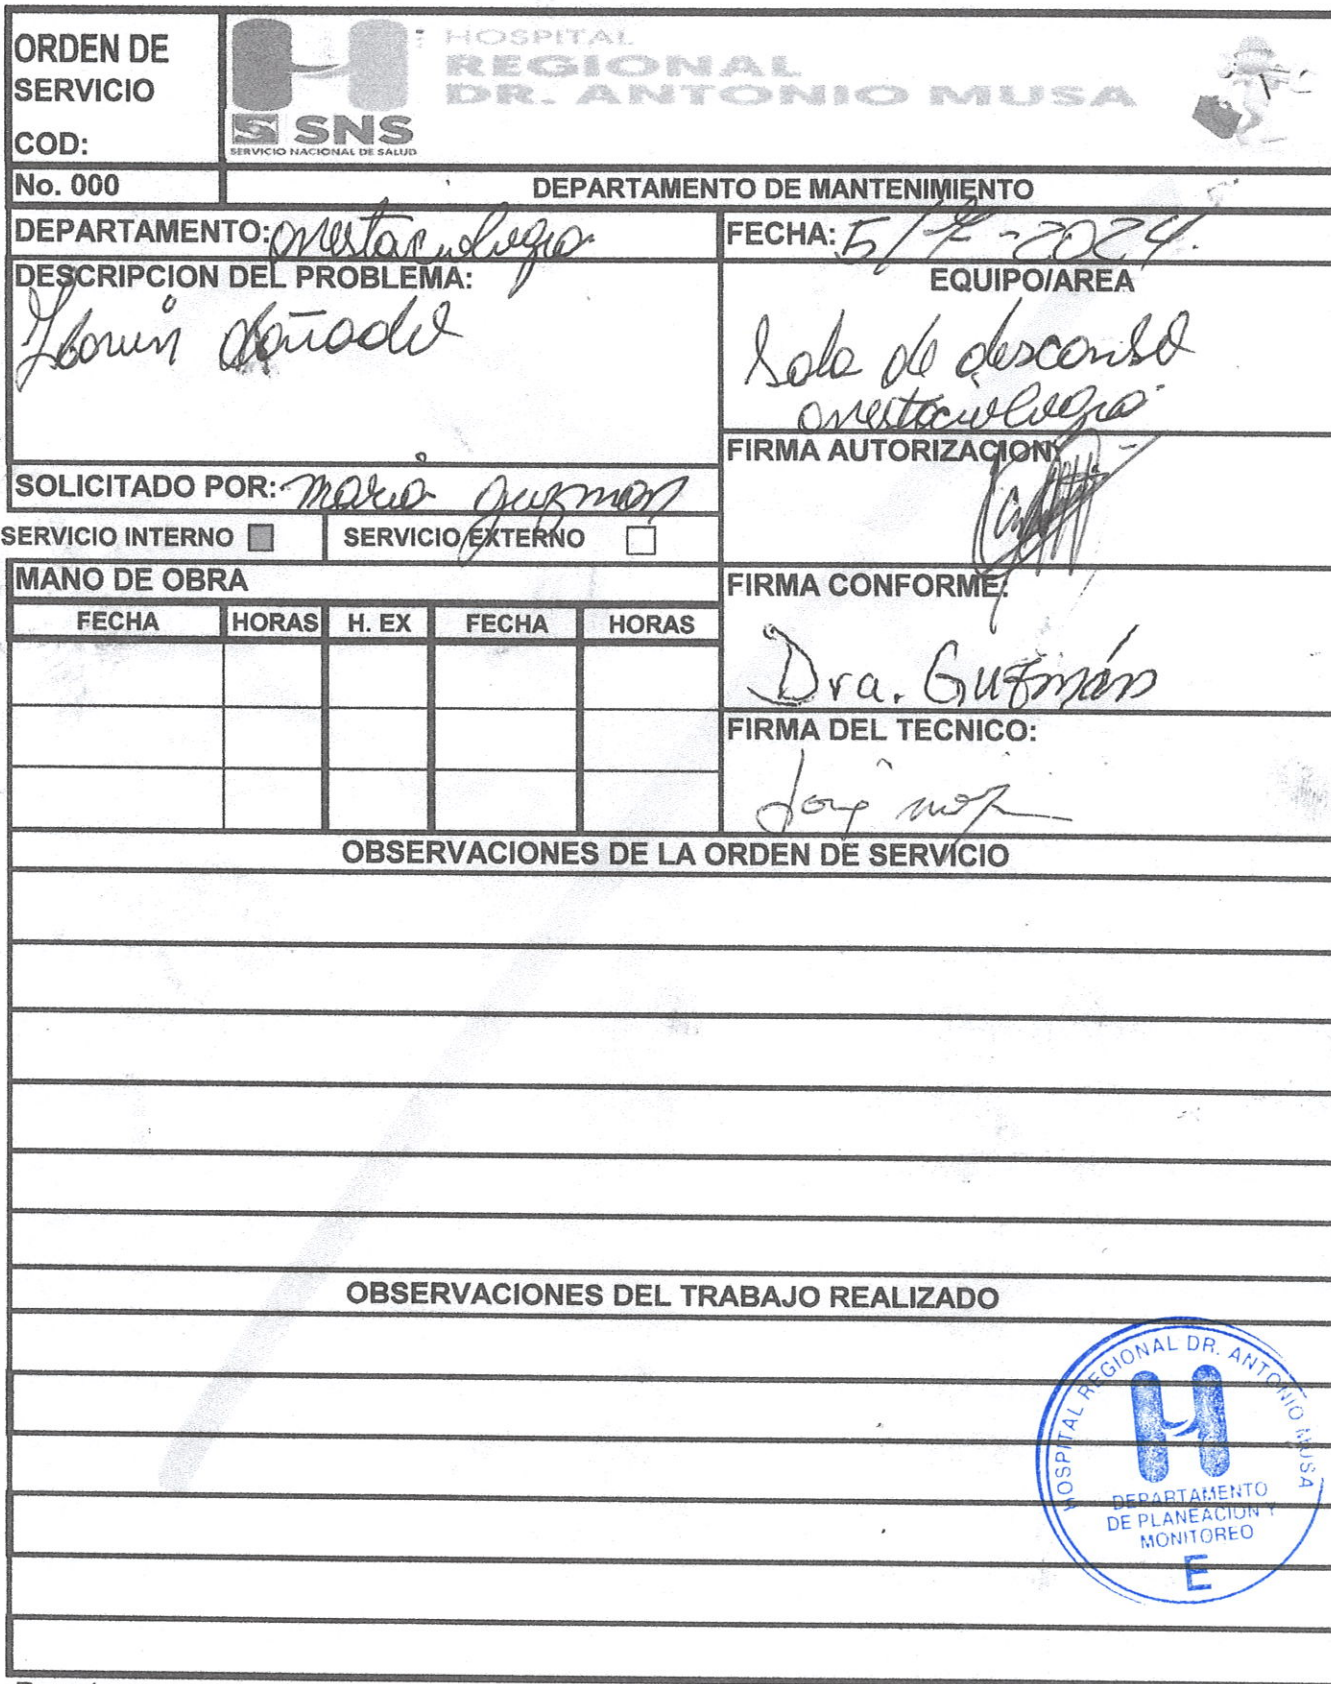 ORDEN DE
SERVICIO
COD:
HOSPITAL
REGIONAL
DR. ANTONIO MUSA
SNS
SERVICIO NACIONAL DE SALUD
No. 000
DEPARTAMENTO DE MANTENIMIENTO
DEPARTAMENTO: anestaciologia
FECHA: 5/7-2024.
DESCRIPCION DEL PROBLEMA:
Llavin dañado
EQUIPO/AREA
Sala de descanso
anestaciologia
FIRMA AUTORIZACION:
SOLICITADO POR: Maria guzman
SERVICIO INTERNO
SERVICIO EXTERNO
MANO DE OBRA
FIRMA CONFORME:
Dra. Guzmán
FECHA HORAS H. EX FECHA HORAS
FIRMA DEL TECNICO:
OBSERVACIONES DE LA ORDEN DE SERVICIO
OBSERVACIONES DEL TRABAJO REALIZADO
HOSPITAL REGIONAL DR. ANTONIO MUSA
DEPARTAMENTO
DE PLANEACION Y
MONITOREO
E